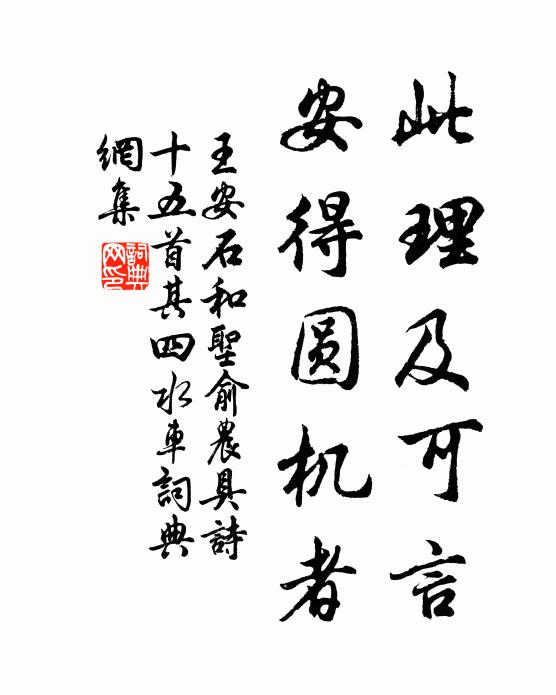 此理及可言
安得圆机者
王安石和聖俞農具詩
十五首其四水車詞典
網集
詞典網印